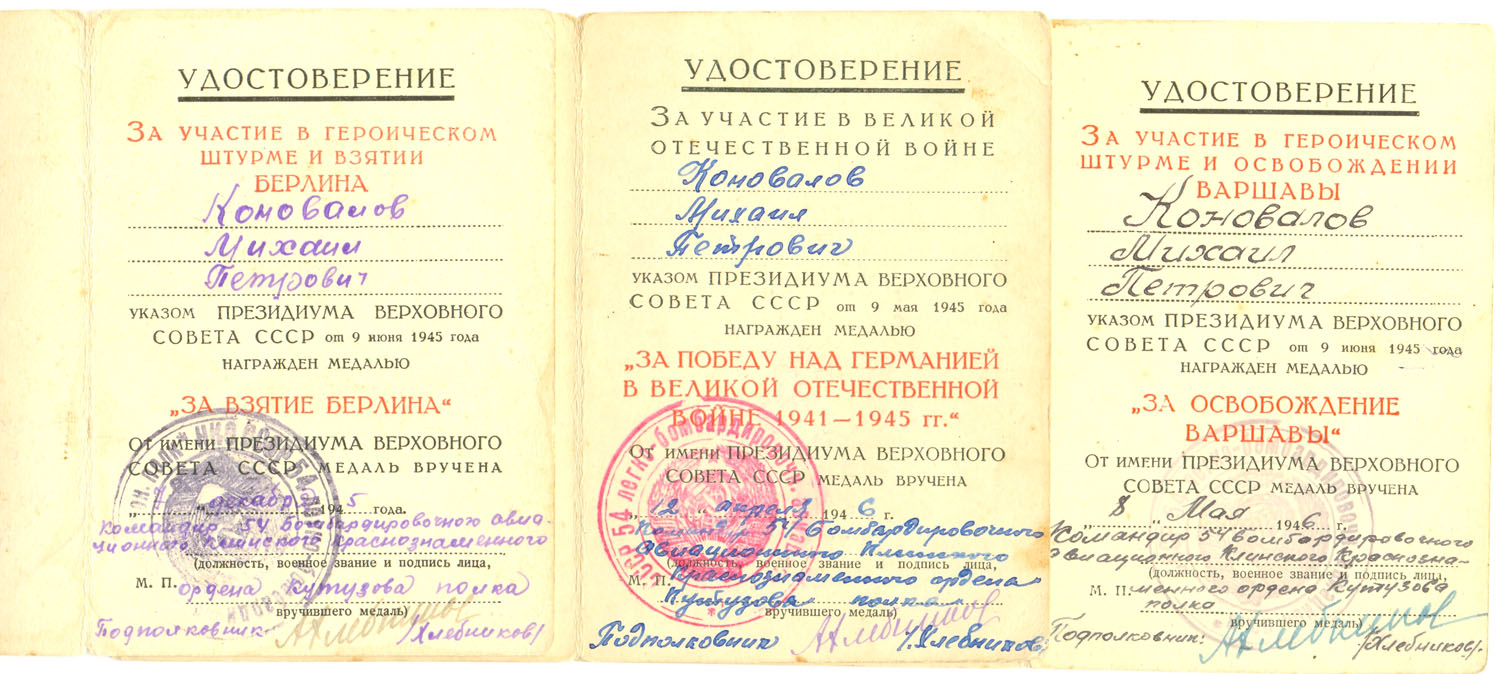 УДОСТОВЕРЕНИЕ
ЗА УЧАСТИЕ В ГЕРОИЧЕСКОМ
ШТУРМЕ И ВЗЯТИИ
БЕРЛИНА
Коновалов
Михаил
Петрович
УКАЗОМ ПРЕЗИДИУМА ВЕРХОВНОГО
СОВЕТА СССР от 9 июня 1945 года
НАГРАЖДЕН МЕДАЛЬЮ
„ЗА ВЗЯТИЕ БЕРЛИНА“
ОТ ИМЕНИ ПРЕЗИДИУМА ВЕРХОВНОГО
СОВЕТА СССР МЕДАЛЬ ВРУЧЕНА
декабр 1945 года.
Командир 54 бомбардировочного авиа-
ционного Клинского Краснознаменного
(должность, военное звание и подпись лица,
М. П. ордена Кутузова полка
вручившего медаль)
Подполковник- АХлебников /Хлебников/
УДОСТОВЕРЕНИЕ
ЗА УЧАСТИЕ В ВЕЛИКОЙ
ОТЕЧЕСТВЕННОЙ ВОЙНЕ
Коновалов
Михаил
Петрович
УКАЗОМ ПРЕЗИДИУМА ВЕРХОВНОГО
СОВЕТА СССР от 9 мая 1945 года
НАГРАЖДЕН МЕДАЛЬЮ
„ЗА ПОБЕДУ НАД ГЕРМАНИЕЙ
В ВЕЛИКОЙ ОТЕЧЕСТВЕННОЙ
ВОЙНЕ 1941—1945 гг.“
ОТ ИМЕНИ ПРЕЗИДИУМА ВЕРХОВНОГО
СОВЕТА СССР МЕДАЛЬ ВРУЧЕНА
„12“ апреля 1946 г.
Командир 54 бомбардировочного
Авиационного Клинского
(должность, военное звание и подпись лица,
М. П. Краснознаменного ордена
Кутузова полка
вручившего медаль)
Подполковник АХлебников /Хлебников/
54 легко-бомбардировочн.
УДОСТОВЕРЕНИЕ
ЗА УЧАСТИЕ В ГЕРОИЧЕСКОМ
ШТУРМЕ И ОСВОБОЖДЕНИИ
ВАРШАВЫ
Коновалов
Михаил
Петрович
УКАЗОМ ПРЕЗИДИУМА ВЕРХОВНОГО
СОВЕТА СССР от 9 июня 1945 года
НАГРАЖДЕН МЕДАЛЬЮ
„ЗА ОСВОБОЖДЕНИЕ
ВАРШАВЫ“
ОТ ИМЕНИ ПРЕЗИДИУМА ВЕРХОВНОГО
СОВЕТА СССР МЕДАЛЬ ВРУЧЕНА
„8“ Мая 1946 г.
Командир 54 бомбардировочного
авиационного Клинского Краснозна-
(должность, военное звание и подпись лица,
М. П. менного ордена Кутузова
полка
вручившего медаль)
Подполковник: АХлебников /Хлебников/.